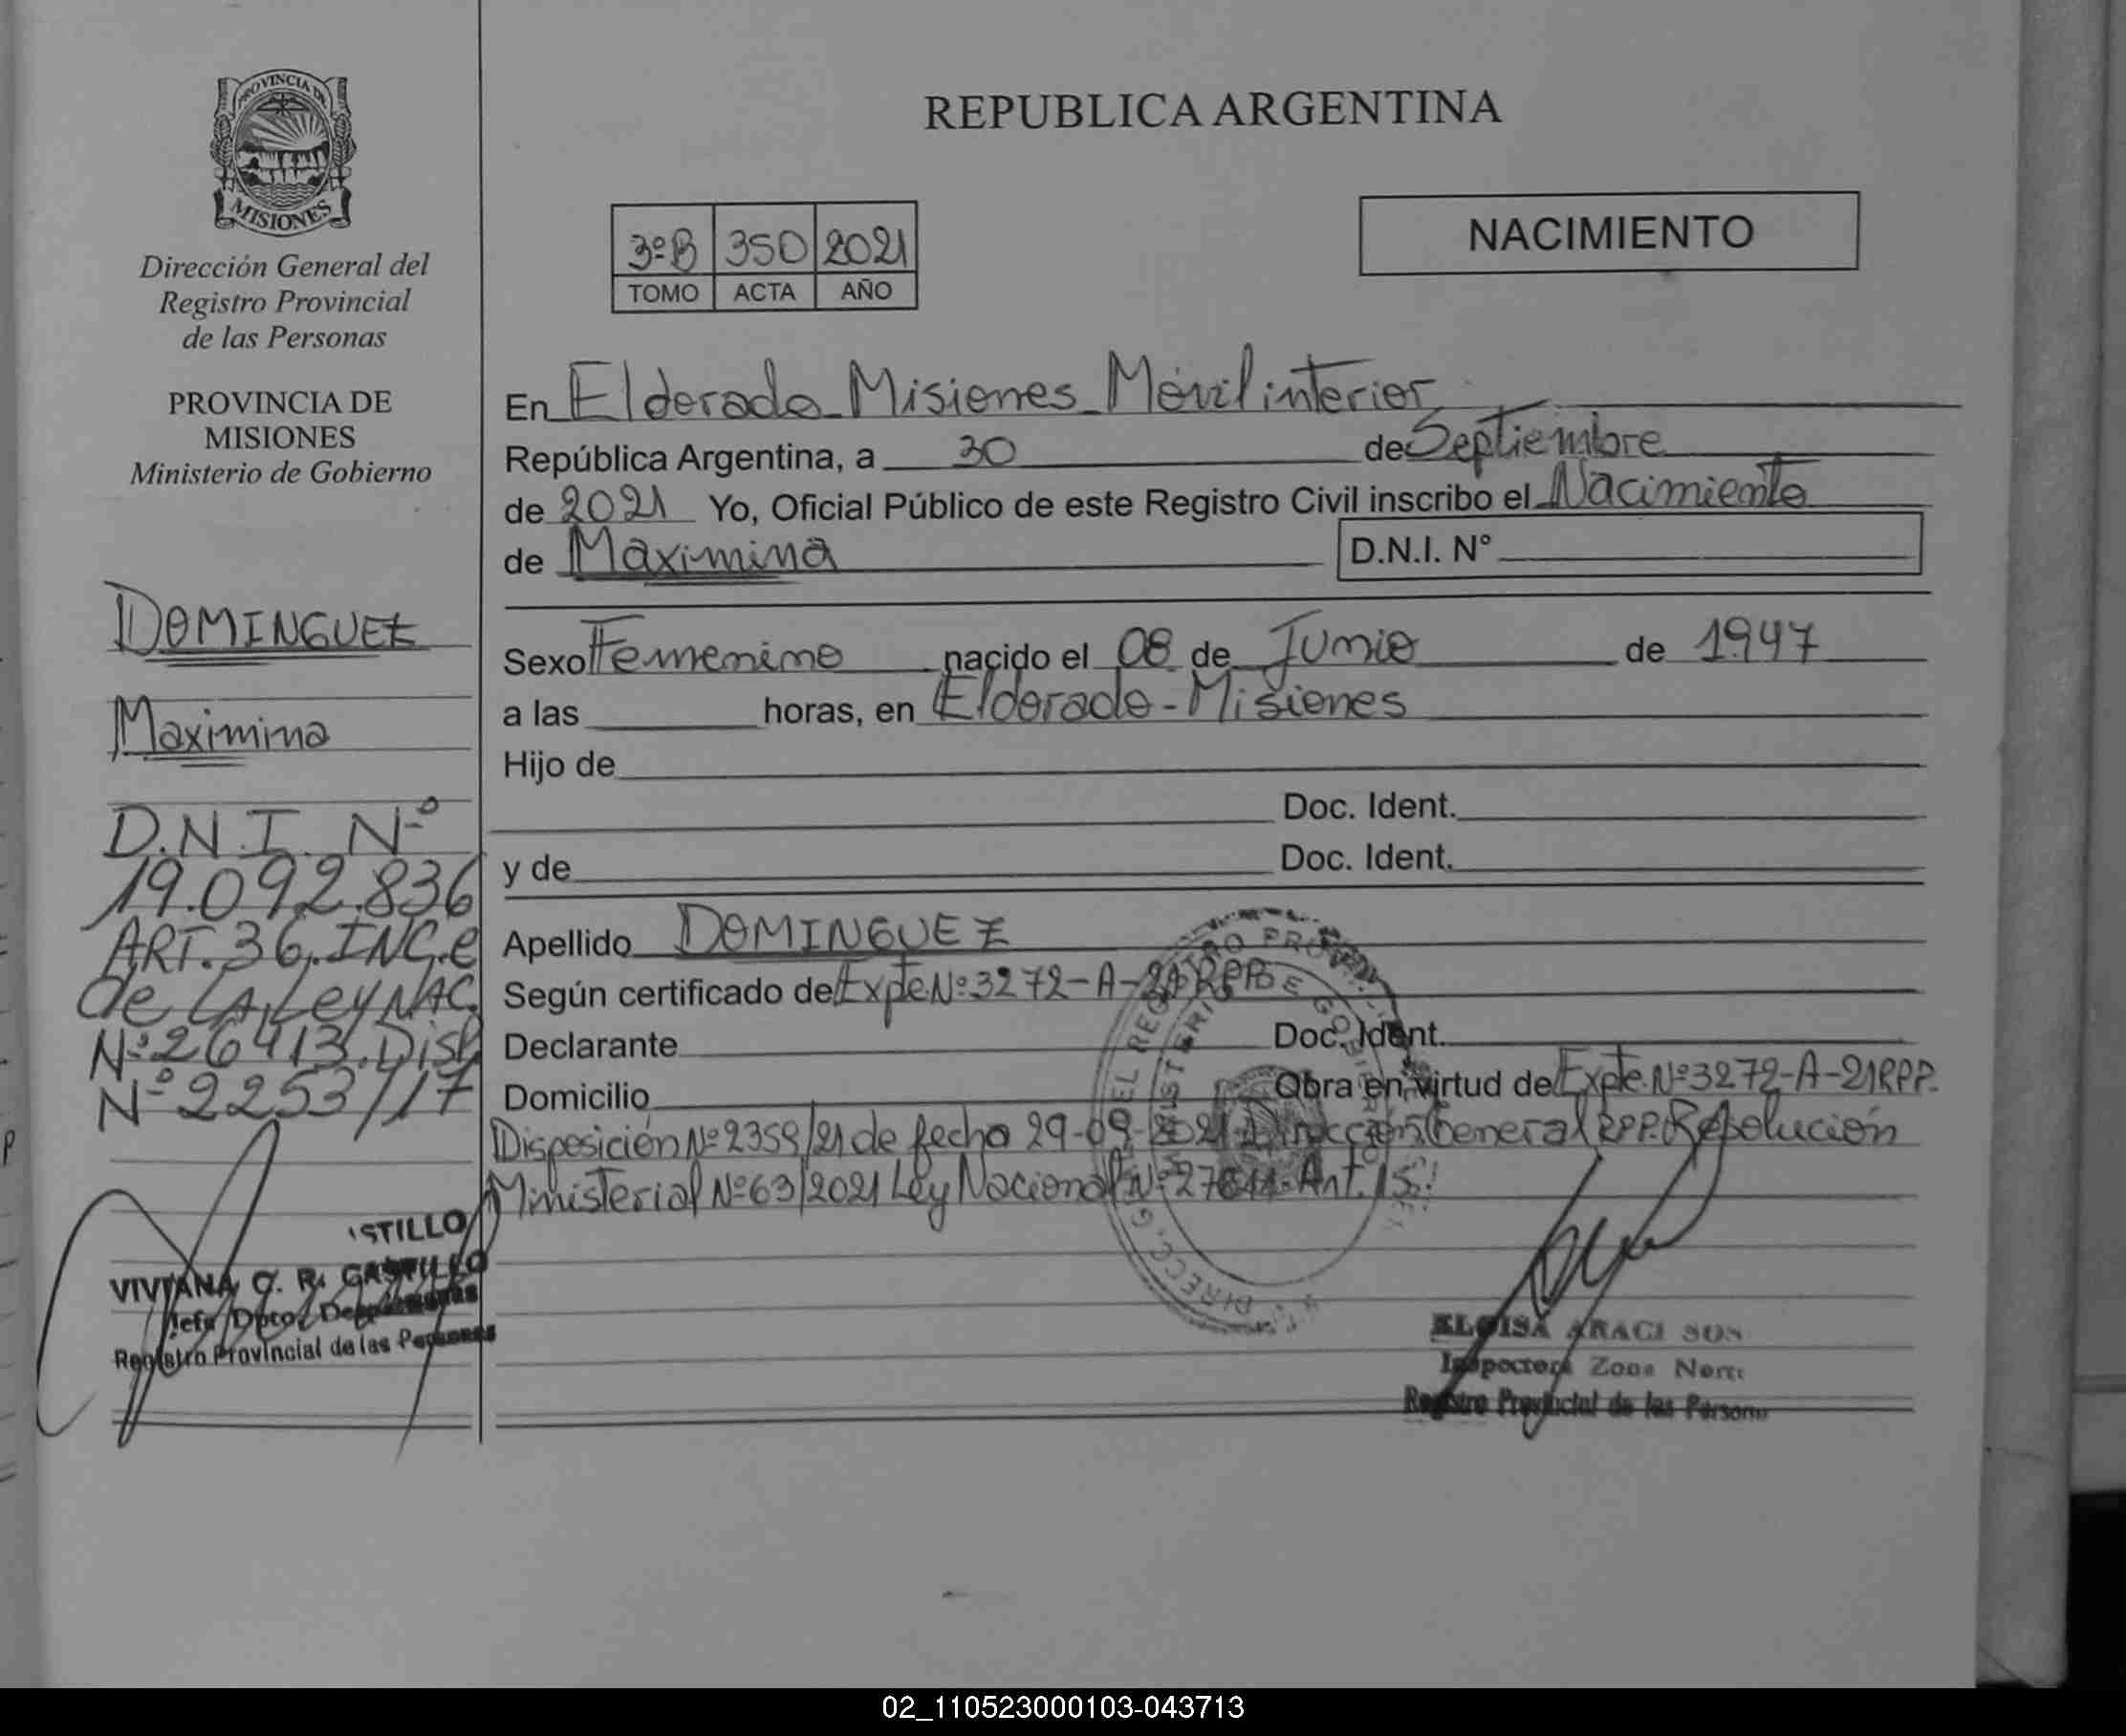 PROVINCIA DE
MISIONES
Dirección General del
Registro Provincial
de las Personas
PROVINCIA DE
MISIONES
Ministerio de Gobierno
DOMINGUEZ
Maximina
D.N.I. Nº
19.092.836
ART. 36, INC. e
de LA Ley NAC.
Nº 26413. Disp
Nº 2253/17
STILLO
VIVIANA C. R. CASTILLO
Jefe Dpto.
Registro Provincial de las Personas
REPUBLICA ARGENTINA
NACIMIENTO
3ºB 350 2021
TOMO ACTA AÑO
En Eldorado Misiones Móvil interior
República Argentina, a 30 de Septiembre
de 2021 Yo, Oficial Público de este Registro Civil inscribo el Nacimiento
de Maximina D.N.I. N°
Sexo Femenino nacido el 08 de Junio de 1947
a las horas, en Eldorado - Misiones
Hijo de
Doc. Ident.
y de Doc. Ident.
Apellido DOMINGUEZ
Según certificado de Expte Nº 3272-A-21 RPP
Declarante Doc. Ident.
Domicilio Obra en virtud de Expte. Nº 3272-A-21RPP.
Disposición Nº 2359/21 de fecha 29-09-2021 Dirección General RPP. Resolución
Ministerial Nº 63/2021 Ley Nacional Nº Art. 15
ELOISA ARACI SOS
Inspectora Zona Norte
Registro Provincial de las Persona
02_110523000103-043713